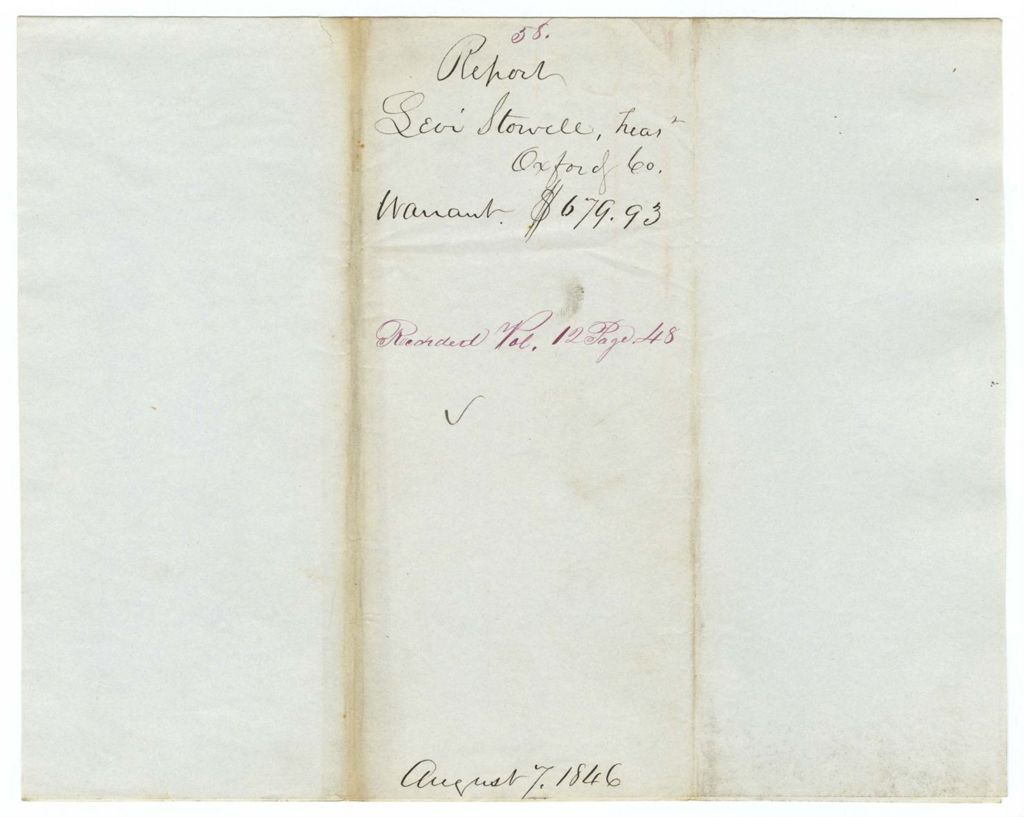 58.
Report
Levi Stowell, Treas^r
Oxford Co.
Warrant. $679.93
Recorded Vol. 12 Page. 48
✓
August 7. 1846